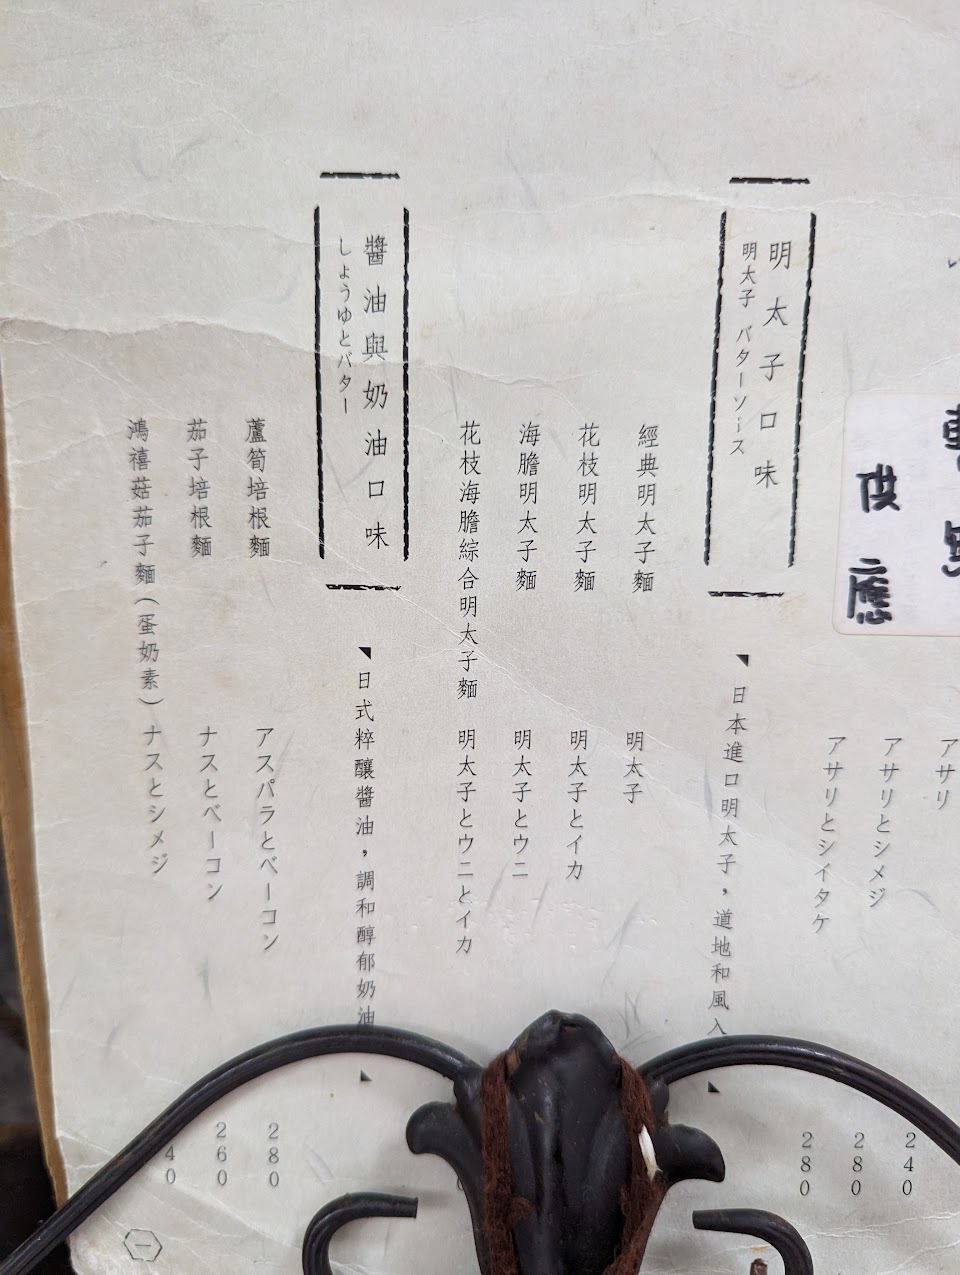 供應
アサリ
アサリとシメジ
アサリとシイタケ
240
280
280
明太子口味
明太子 バターソース
日本進口明太子，道地和風入
經典明太子麵 明太子
花枝明太子麵 明太子とイカ
海膽明太子麵 明太子とウニ
花枝海膽綜合明太子麵 明太子とウニとイカ
醬油與奶油口味
しょうゆとバター
日式粹釀醬油，調和醇郁奶油
蘆筍培根麵 アスパラとベーコン 280
茄子培根麵 ナスとベーコン 260
鴻禧菇茄子麵(蛋奶素) ナスとシメジ 40
一